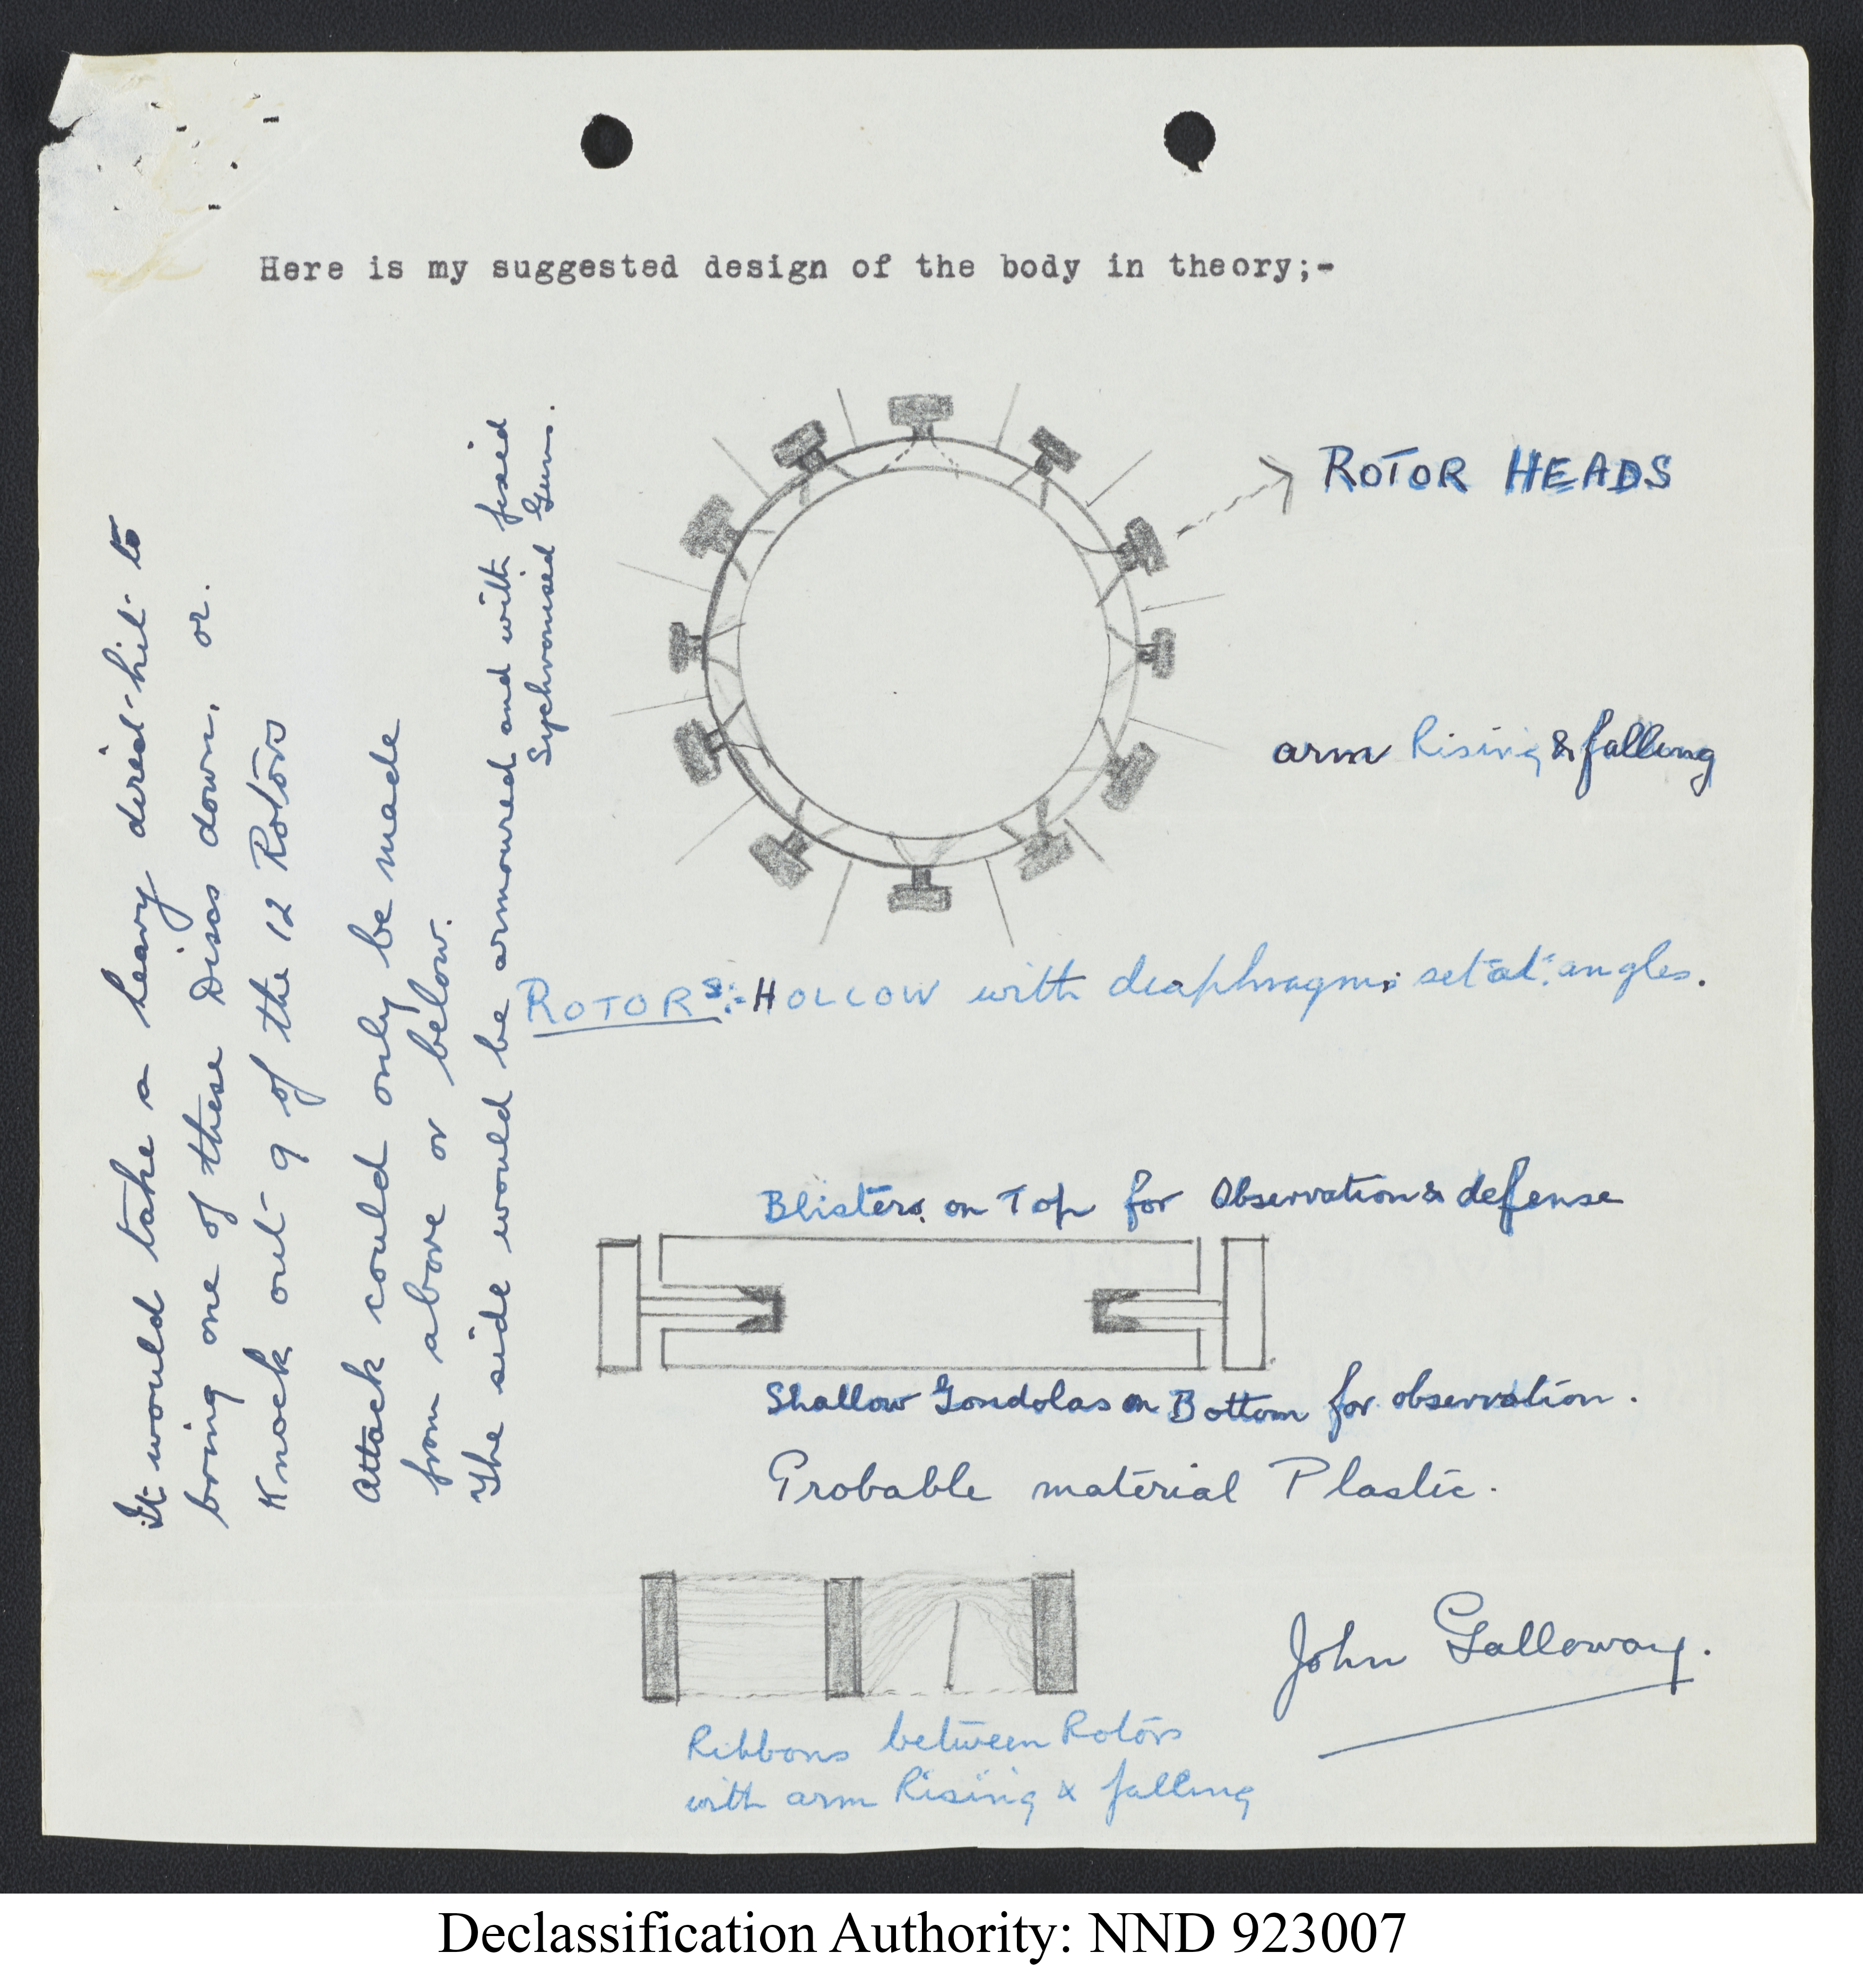 Here is my suggested design of the body in theory;-
ROTOR HEADS
arm Rising & falling
ROTORS:- HOLLOW with diaphragms set at angles.
It would take a heavy direct-hit to
bring one of these Discs down, or.
Knock out 9 of the 12 Rotors
Attack could only be made
from above or below.
The side would be armoured and with fixed
Sychronised Guns.
Blisters on Top for Observation & defense
Shallow Gondolas on Bottom for observation.
Probable material Plastic.
Ribbons between Rotors
with arm Rising & falling
John Galloway.
Declassification Authority: NND 923007